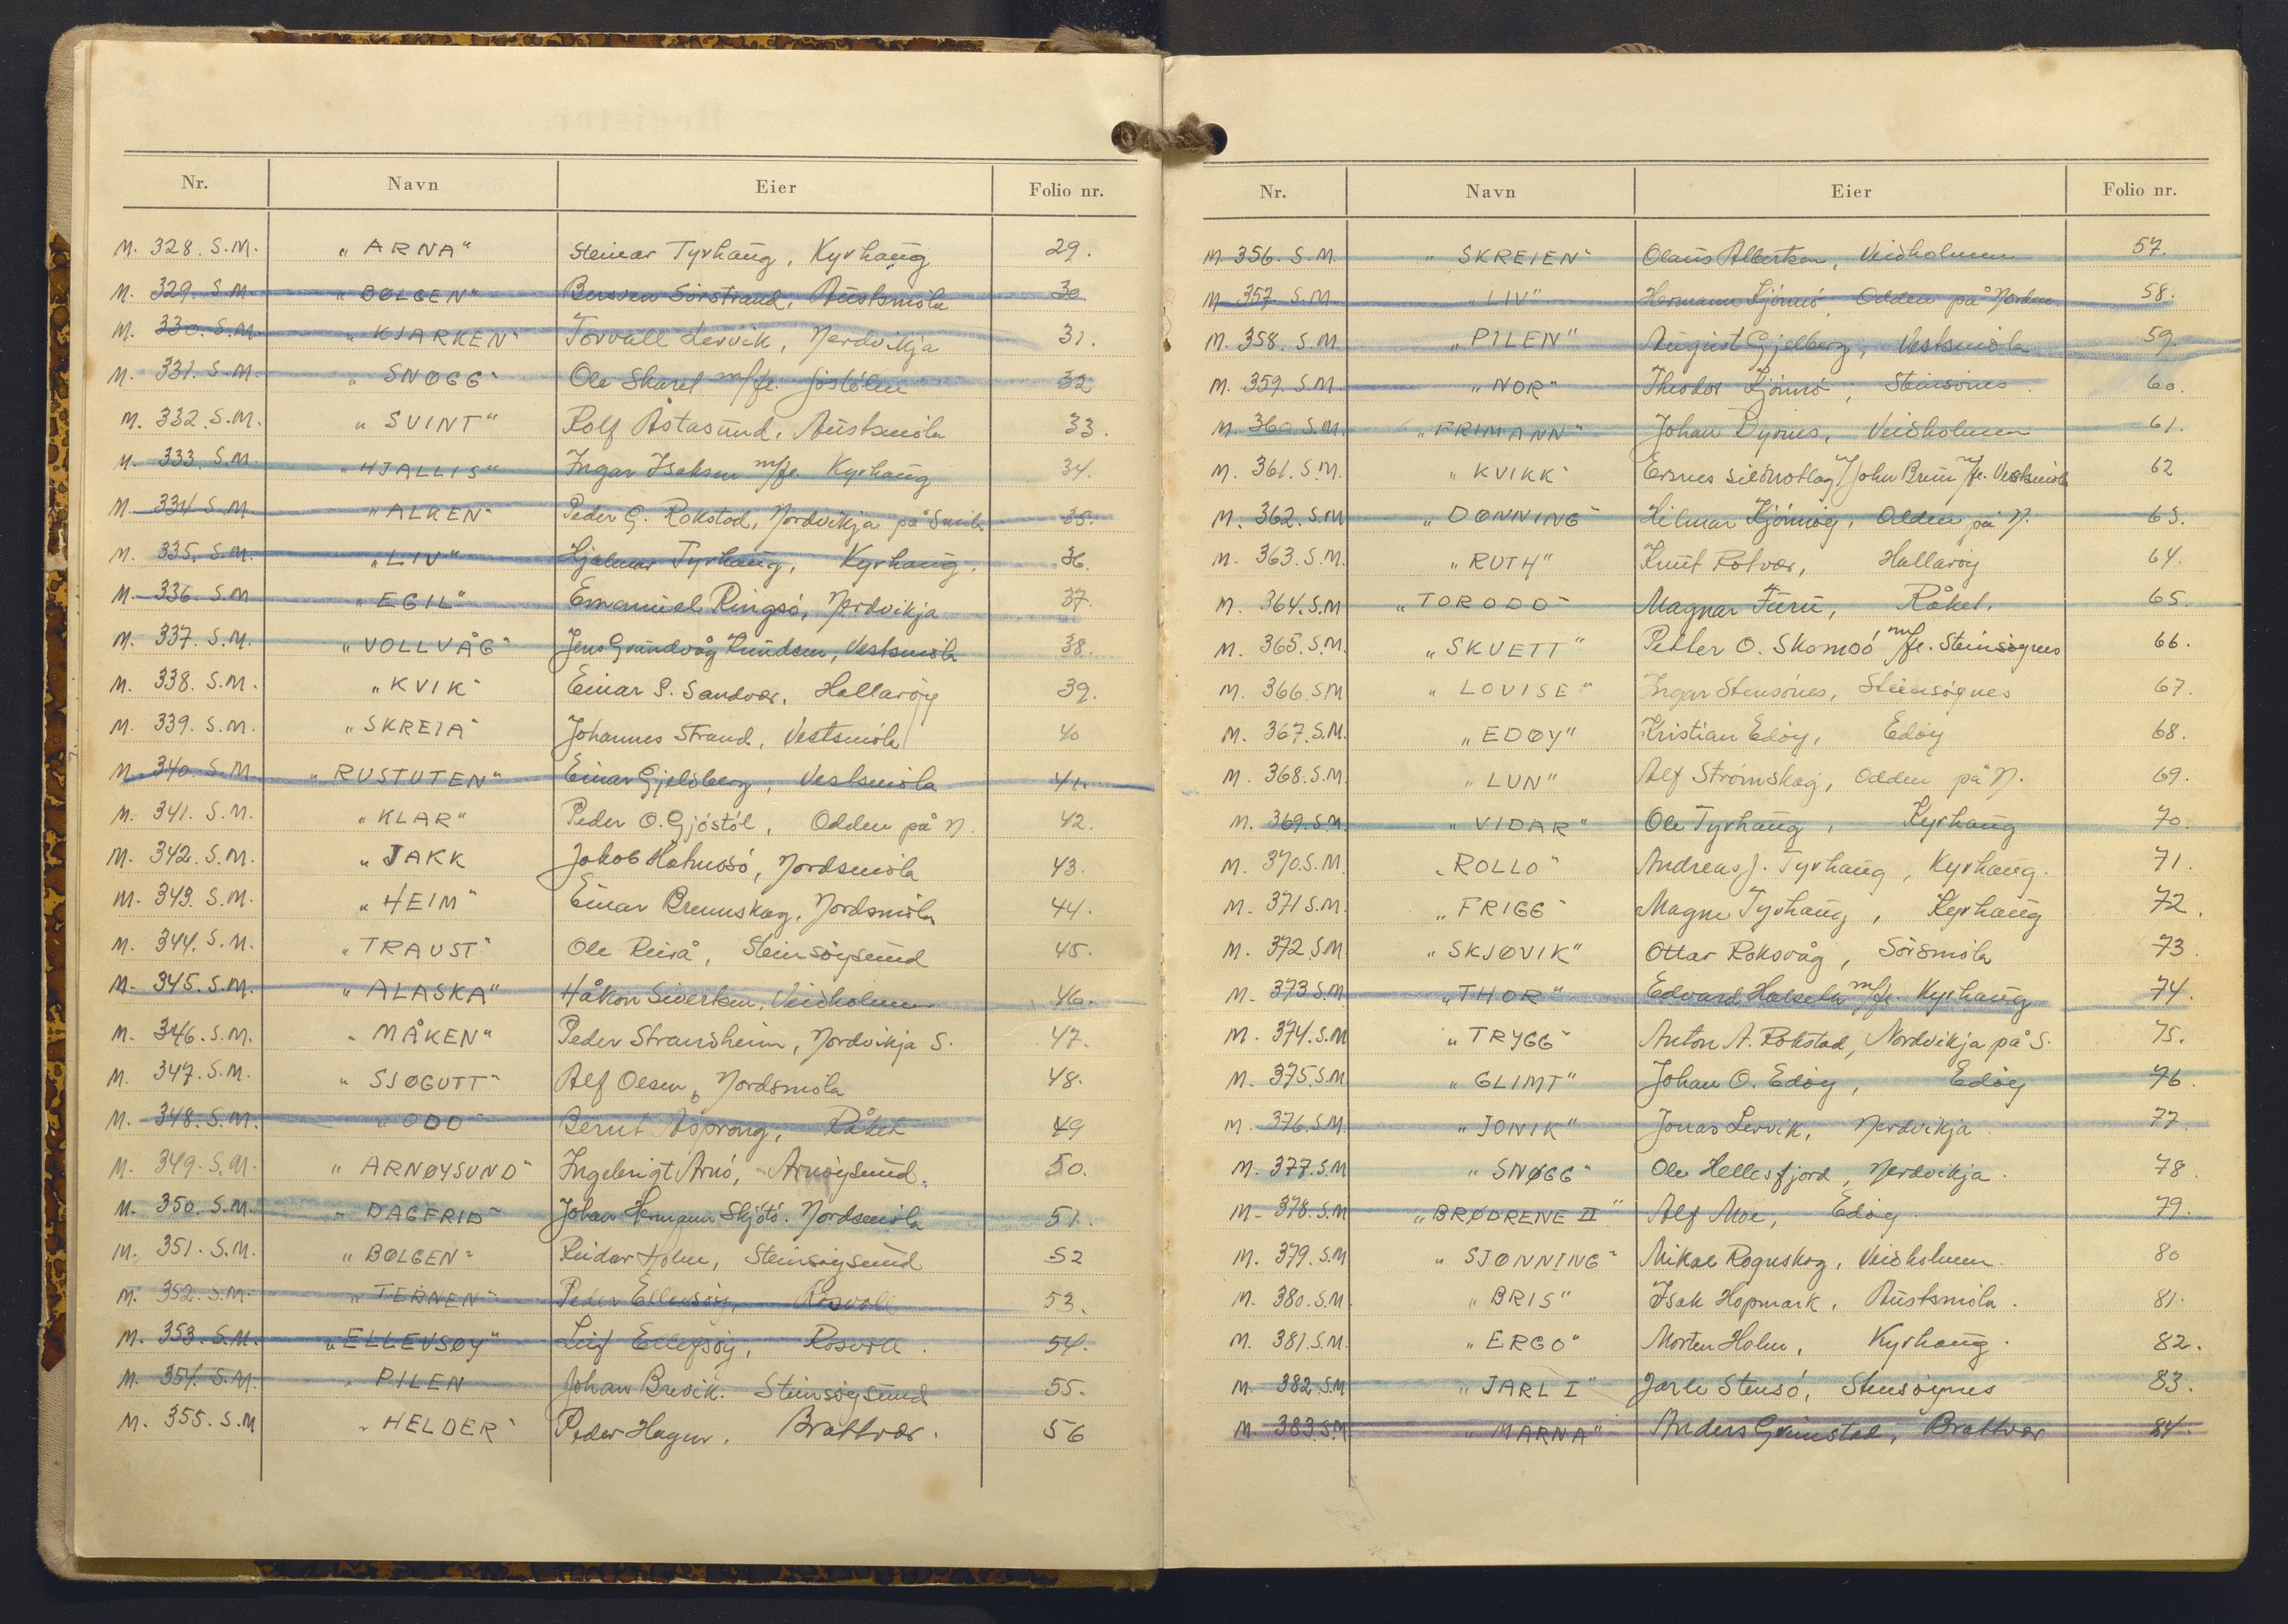 Nr. Navn Eier Folio nr.
M. 328. S.M. „ARNA“ Steinar Tyrhaug, Kyrhaug 29.
M. 329. S.M. „BØLGEN“ Bersven Sørstrand, Austsmøla 30
M. 330. S.M. „KJARKEN“ Torvall Lervik, Nordvikja 31.
M. 331. S.M. „SNØGG“ Ole Skarel m/fl. Jøstølen 32
M. 332. S.M. „SVINT“ Rolf Åstasund, Austsmøla 33.
M. 333. S.M. „HJALLIS“ Ingar Isaksen m/fl. Kyrhaug 34.
M. 334 S.M „ALKEN“ Peder G. Rokstad, Nordvikja på Smøla 35.
M. 335. S.M. „LIV“ Hjalmar Tyrhaug, Kyrhaug. 36.
M. 336. S.M „EGIL“ Emanuel Ringsø, Nordvikja 37.
M. 337. S.M. „VOLLVÅG“ Jens Grundvåg Knudsen, Vestsmøla 38.
M. 338. S.M. „KVIK“ Einar P. Sandvær, Hallarøy 39.
M. 339. S.M. „SKREIA“ Johannes Strand, Vestsmøla 40
M. 340. S.M. „RUSTUTEN“ Einar Gjelberg, Vestsmøla 41.
M. 341. S.M. „KLAR“ Peder O. Gjøstøl, Odden på N. 42.
M. 342. S.M. „JAKK Jakob Holmosø, Nordsmøla 43.
M. 343. S.M. „HEIM“ Einar Brunnskag, Nordsmøla 44.
M. 344. S.M. „TRAUST“ Ole Reirå, Steinsøysund 45.
M. 345. S.M. „ALASKA“ Håkon Sivertsen, Veidholmen 46.
M. 346. S.M. „MÅKEN“ Peder Strandheim, Nordvikja S. 47.
M. 347. S.M. „SJØGUTT“ Alf Olsen, Nordsmøla 48.
M. 348. S.M. „ODD“ Bernt Åsprong, Råket 49
M. 349. S.M. „ARNØYSUND“ Ingebrigt Arnø, Arnøysund. 50.
M. 350. S.M. „DAGFRID“ Johan Hermann Skjøtø. Nordsmøla 51.
M. 351. S.M. „BØLGEN“ Reidar Holm, Steinsøysund 52
M. 352. S.M. „TERNEN“ Peder Ellevsøy, Rosvoll 53.
M. 353. S.M. „ELLEVSØY“ Leif Ellefsøy, Rosvoll. 54.
M. 354. S.M. „PILEN Johan Brevik. Steinsøysund 55.
M. 355. S.M „HELDER“ Peder Hagen. Brattvær. 56
Nr. Navn Eier Folio nr.
M. 356. S.M. „SKREIEN“ Olaus Albertsen, Veidholmen 57.
M 357 S.M „LIV“ Hermann Kjønnø, Odden på Norden. 58.
M. 358. S.M. „PILEN“ August Gjelberg, Vestsmøla 59.
M. 359. S.M. „NOR“ Theodor Kjønnø, Steinsønes. 60.
M. 360. S.M. „FRIMANN“ Johan Dyrnes, Veidholmen 61.
M. 361. S.M. „KVIKK“ Ersnes sildnotlag v/John Bruu m/fl. Vestsmøla 62
M. 362. S.M „DØNNING“ Hilmar Kjønnøy, Odden på N. 63.
M. 363. S.M. „RUTH“ Knut Rotvær, Hallarøy 64.
M. 364. S.M „TORODD“ Magnar Furu, Råket. 65.
M. 365. S.M. „SKVETT“ Petter O. Skomsø m/fl. Steinsøynes 66.
M. 366. S.M „LOVISE“ Ingar Stensønes, Steinsøynes 67.
M. 367. S.M. „EDØY“ Kristian Edøy, Edøy 68.
M. 368. S.M. „LUN“ Alf Strømskag, Odden på N. 69.
M. 369. S.M. „VIDAR“ Ole Tyrhaug, Kyrhaug 70.
M. 370. S.M. „ROLLO“ Andreas J. Tyrhaug, Kyrhaug. 71.
M. 371 S.M. „FRIGG“ Magne Tyrhaug, Kyrhaug 72.
M. 372 S.M „SKJØVIK“ Ottar Roksvåg, Sørsmøla 73.
M. 373 S.M „THOR“ Edvard Holseth m/fl. Kyrhaug 74.
M. 374. S.M „TRYGG“ Anton A. Rokstad, Nordvikja på S. 75.
M. 375. S.M „GLIMT“ Johan O. Edøy, Edøy 76.
M. 376. S.M. „JONIK“ Jonas Lervik, Nordvikja. 77.
M. 377. S.M „SNØGG“ Ole Hellesfjord, Nordvikja. 78.
M. 378. S.M „BRØDRENE II“ Alf Moe, Edøy. 79.
M. 379. S.M „SJØNNING“ Mikal Rognskog, Veidholmen. 80
M. 380. S.M. „BRIS“ Isak Hopmark, Austsmøla. 81.
M. 381. S.M. „ERGO“ Morten Holm, Kyrhaug. 82.
M. 382. S.M „JARL I“ Jarle Stensø, Stensøynes 83.
M 383. S.M „MARNA“ Anders Grimstad, Brattvær 84.